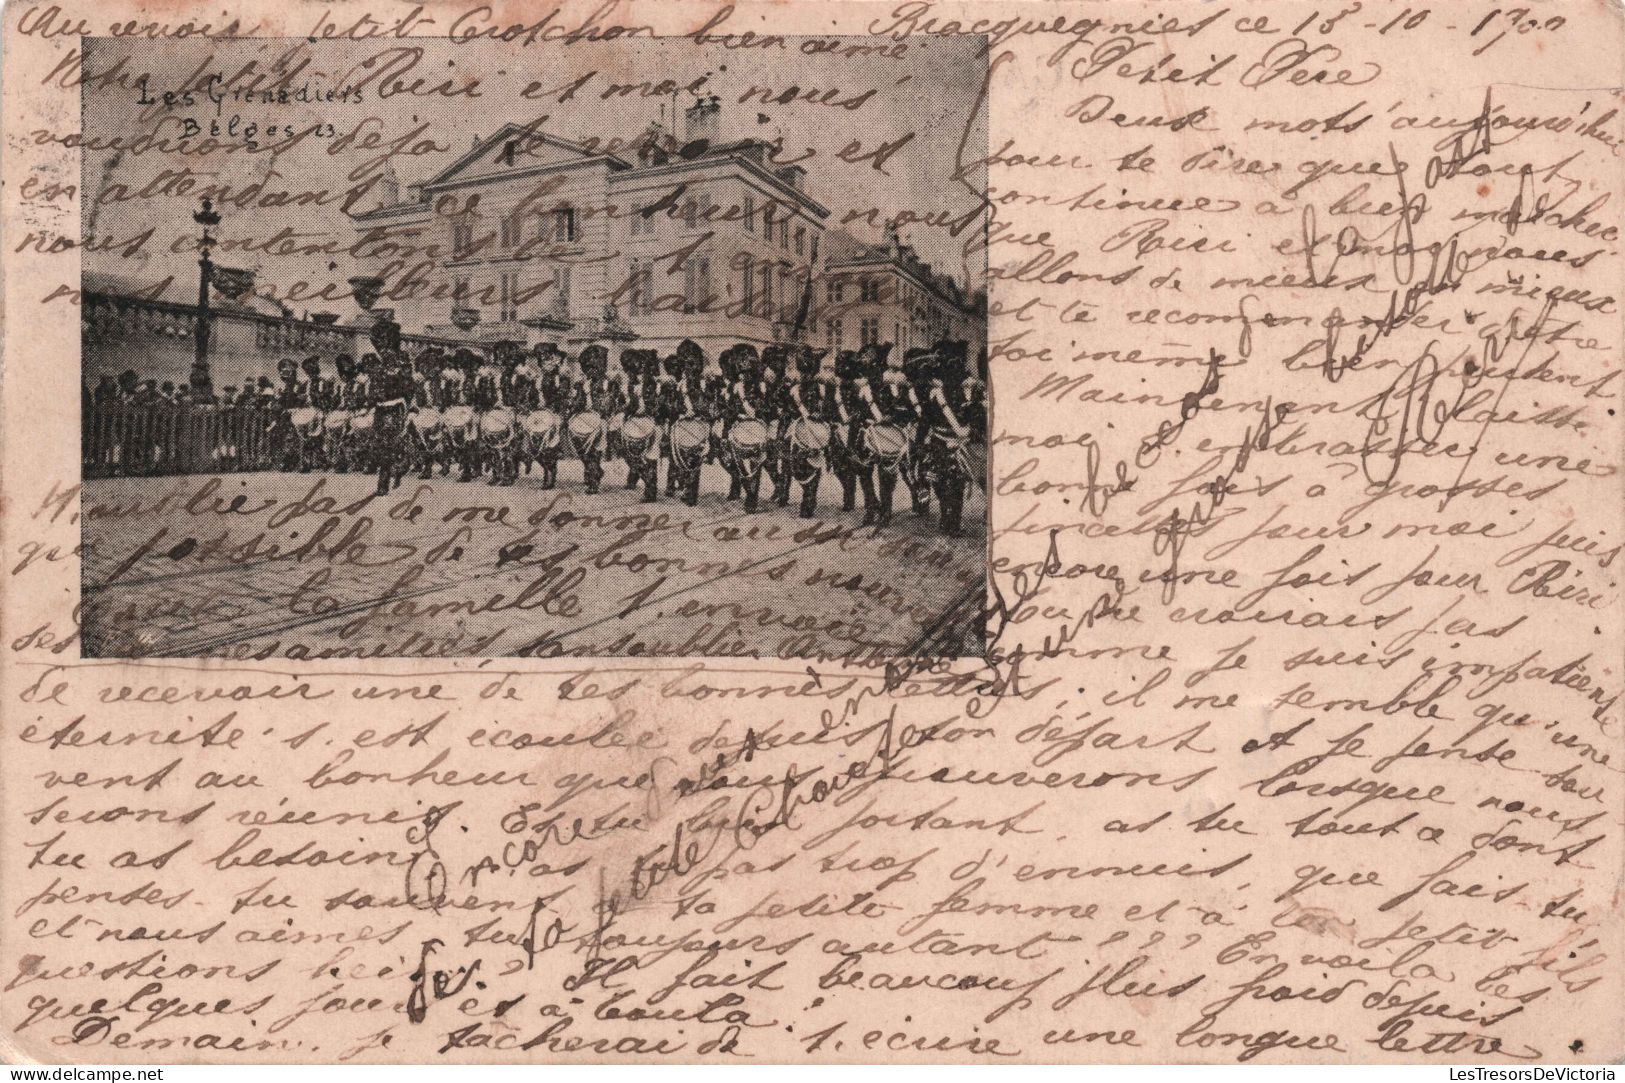 Bracquegnies ce 18-10-1900
Petit Père
Deux mots aujourd'hui
pour te dire que tout
continue à bien marcher
que Riri et moi nous
allons de mieux mieux
et te recommander d'être
toi même bien prudent
Maintenant laisse
moi t'embrasser une
bonne fois à grosses
pincettes pour moi puis
encore une fois pour Riri
Tu ne croirais pas
comme je suis impatiente
de recevoir une de tes bonnes lettres, il me semble qu'une
éternité s'est écoulée depuis ton départ et je pense sou
vent au bonheur que nous trouverons lorsque nous
serons réunis. Es tu bien portant, as tu tout ce dont
tu as besoin, as pas trop d'ennuis, que fais-tu
penses-tu souvent à ta petite femme et à ton petit fils
et nous aimes tu toujours autant ??? En voilà des
questions hein? Il fait beaucoup plus froid depuis
quelques jours et à toula!
Demain, je tâcherai de t'écrire une longue lettre.
Au revoir petit Crotchon bien aimé
Notre petit Riri et moi nous
voudrions déjà te revoir et
en attendant ce bonheur nous
nous contentons de t'envoyer
nos meilleurs baisers
N'oublie pas de me donner aussi souvent
que possible de tes bonnes nouvelles
Toute la famille t'envoie
ses amitiés sans oublier
Les Grenadiers
Belges 23.
Encore
petite
LesTresorsDeVictoria